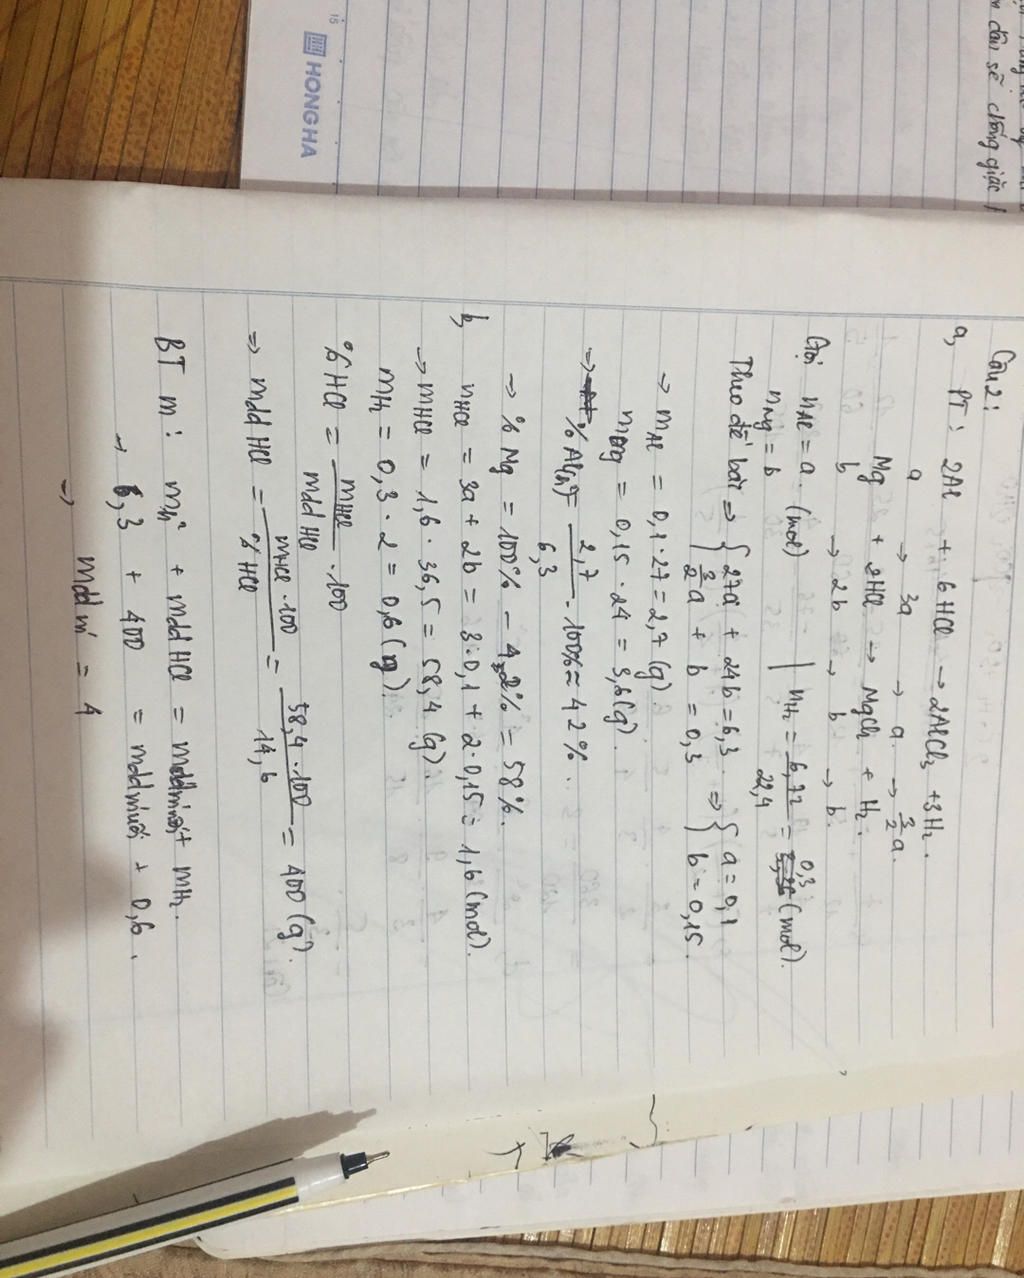 HONGHA
15
n dân sẽ chống giặc
Câu 2:
a, PT: 2Al + 6HCl → 2AlCl3 + 3H2.
a → 3a → a → 3/2 a.
Mg + 2HCl → MgCl2 + H2.
b → 2b → b → b.
Gọi nAl = a. (mol) | nH2 = 6,72/22,4 = 0,3 (mol).
nMg = b
Theo đề bài ⇒ { 27a + 24b = 6,3 ⇒ { a = 0,1
{ 3/2 a + b = 0,3 { b = 0,15.
→ mAl = 0,1.27 = 2,7 (g).
mMg = 0,15.24 = 3,6 (g).
→ %Al = 2,7/6,3 . 100% ≈ 42%.
→ %Mg = 100% - 42% = 58%.
b, nHCl = 3a + 2b = 3.0,1 + 2.0,15 = 1,6 (mol).
→ mHCl = 1,6.36,5 = 58,4 (g).
mH2 = 0,3.2 = 0,6 (g).
%HCl = mHCl/mdd HCl . 100
⇒ mdd HCl = mHCl.100/%HCl = 58,4.100/14,6 = 400 (g).
BT m: + mdd HCl = mdd muối + mH2.
→ 6,3 + 400 = mdd muối + 0,6.
→ mdd m = 4